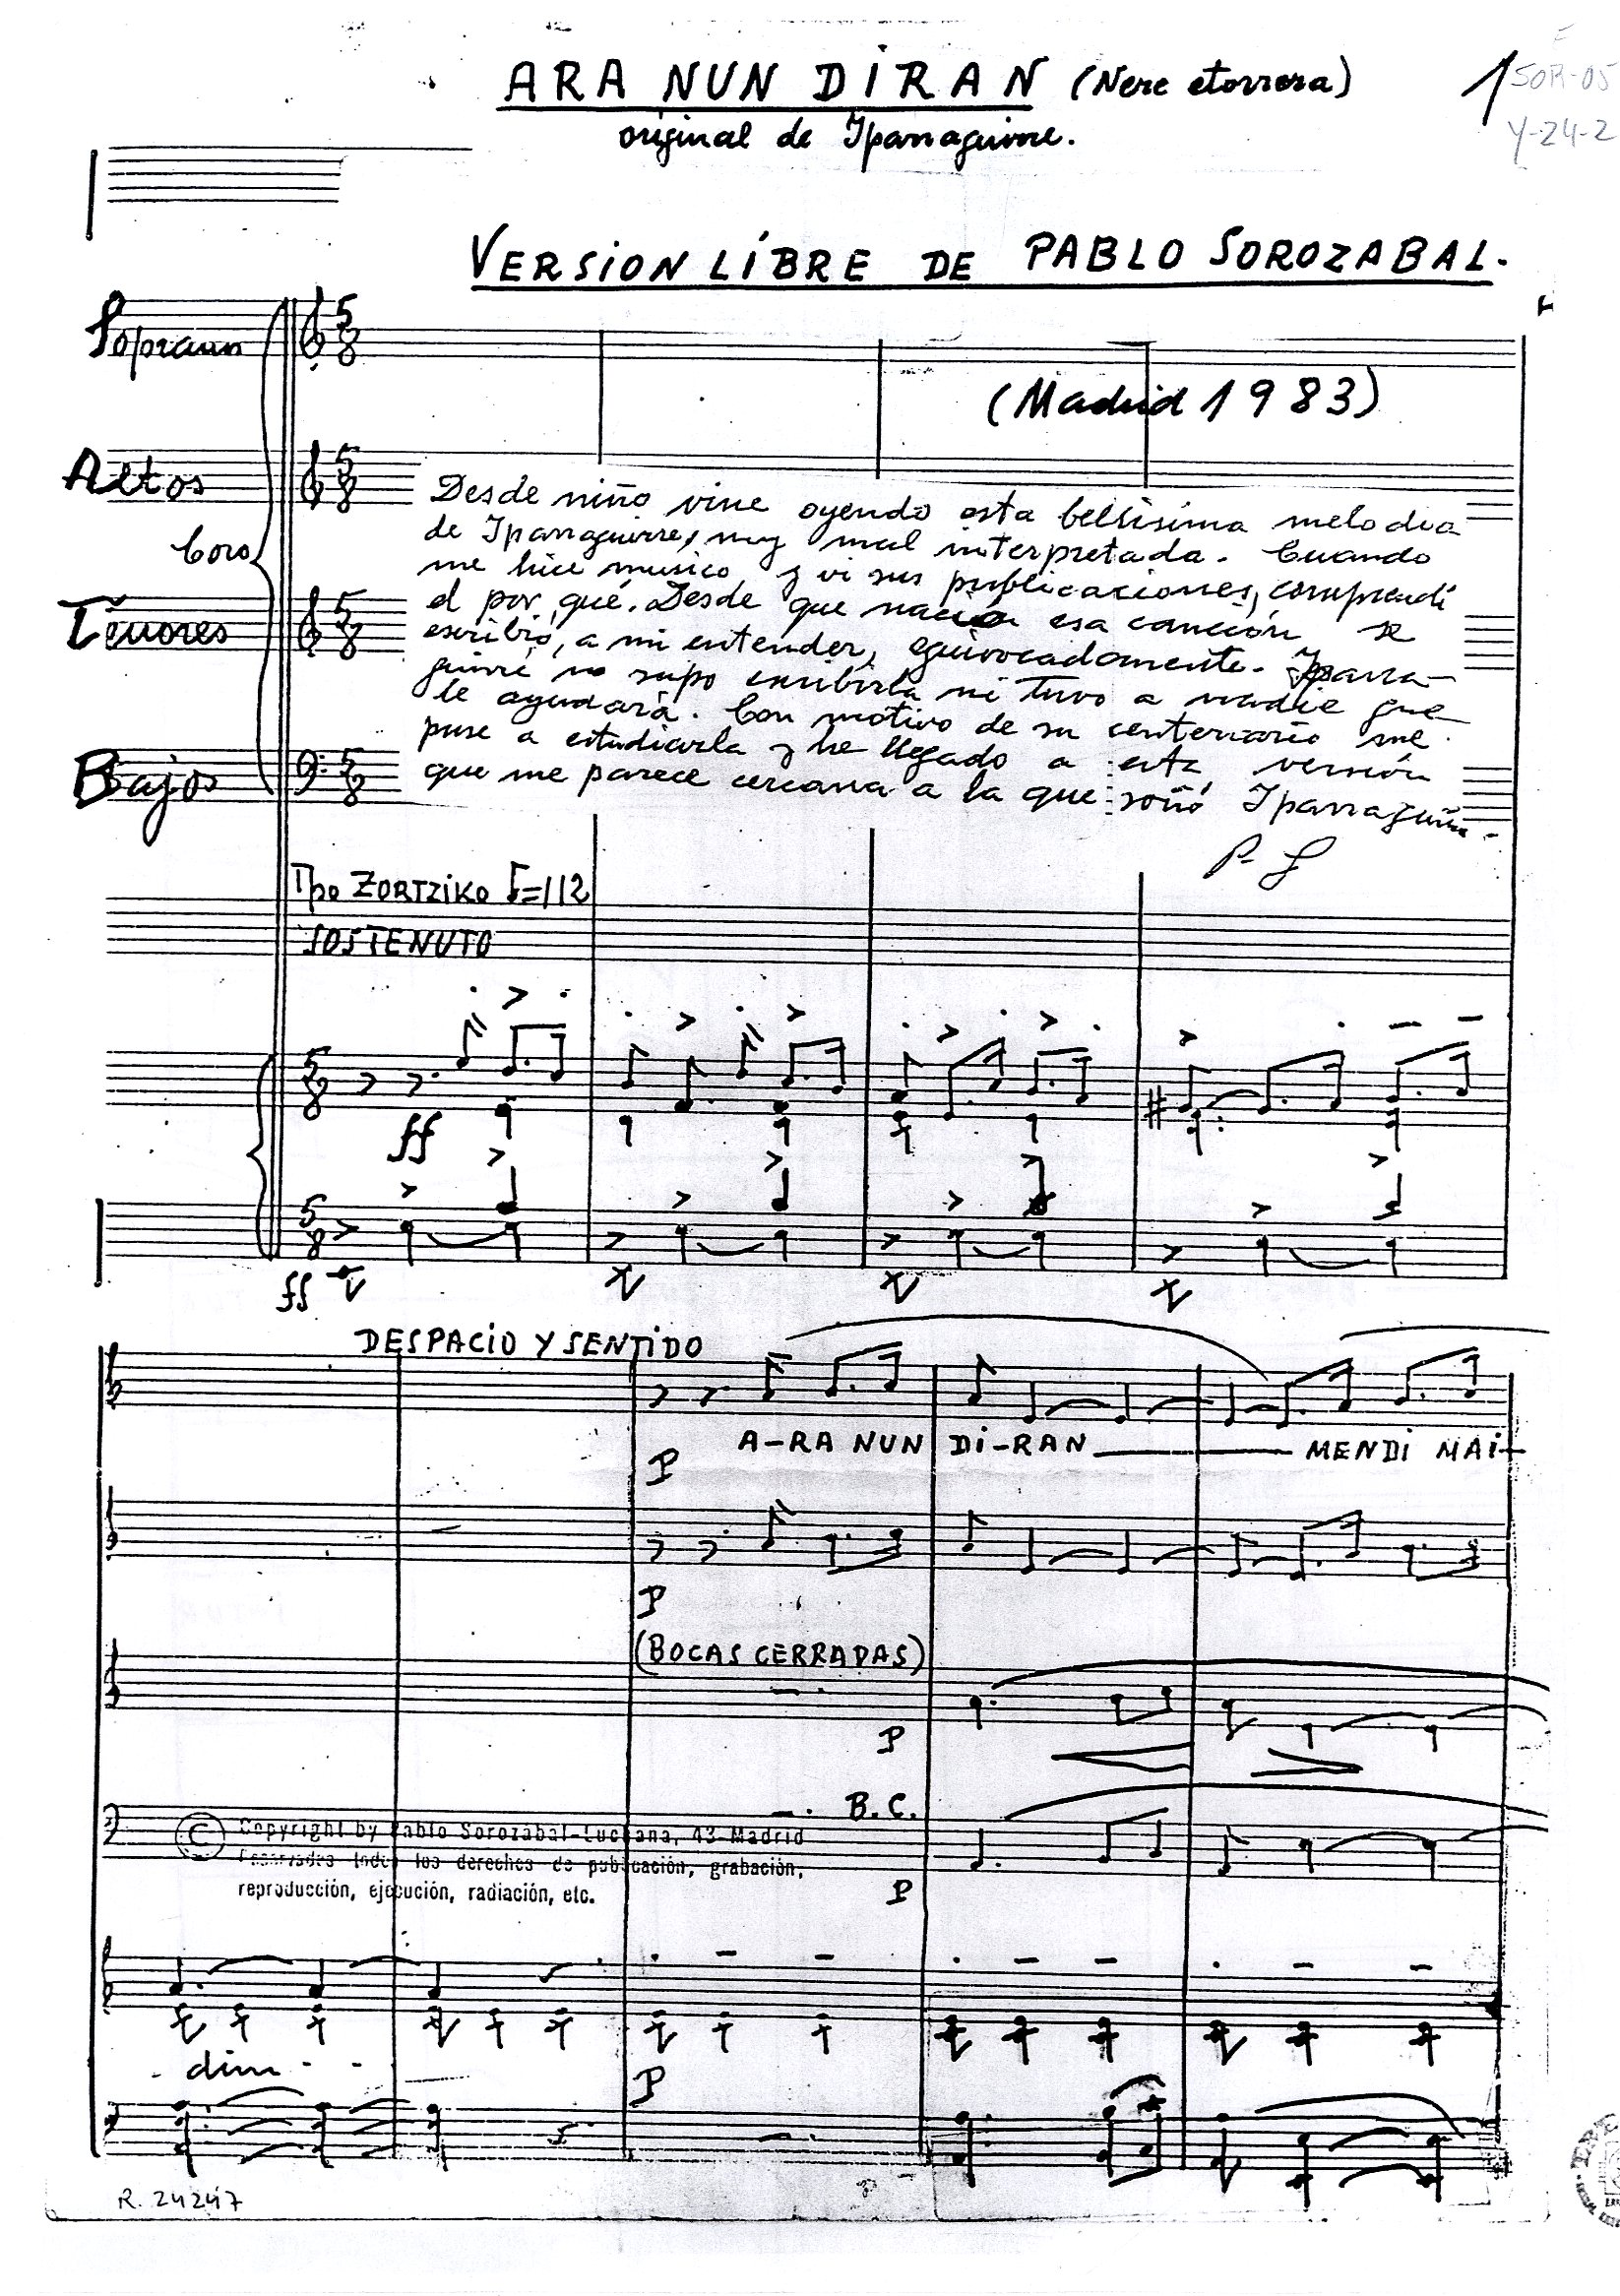 ARA NUN DIRAN (Nere etorrera)
original de Iparraguirre.
1
SOR-05
Y-24-2
VERSION LIBRE DE PABLO SOROZABAL.
Sopranos
(Madrid 1983)
Altos
Coro
Tenores
Bajos
Desde niño vine oyendo esta bellisima melodia
de Iparraguirre, muy mal interpretada. Cuando
me hice musico y vi sus publicaciones, comprendi
el por qué. Desde que nació esa canción se
escribió, a mi entender, equivocadamente. Iparra-
guirre no supo escribirla ni tuvo a nadie que
le ayudara. Con motivo de su centenario me
puse a estudiarla y he llegado a esta versión
que me parece cercana a la que soñó Iparraguirre.
P. S
Tpo ZORTZIKO ♪=112
SOSTENUTO
ff
ff
DESPACIO Y SENTIDO
A-RA NUN DI-RAN MENDI MAI-
P
P
(BOCAS CERRADAS)
P
B.C.
© Copyright by Pablo Sorozábal-Luchana, 43-Madrid
Reservados todos los derechos de publicación, grabación,
reproducción, ejecución, radiación, etc.
P
dim - -
P
R. 24247